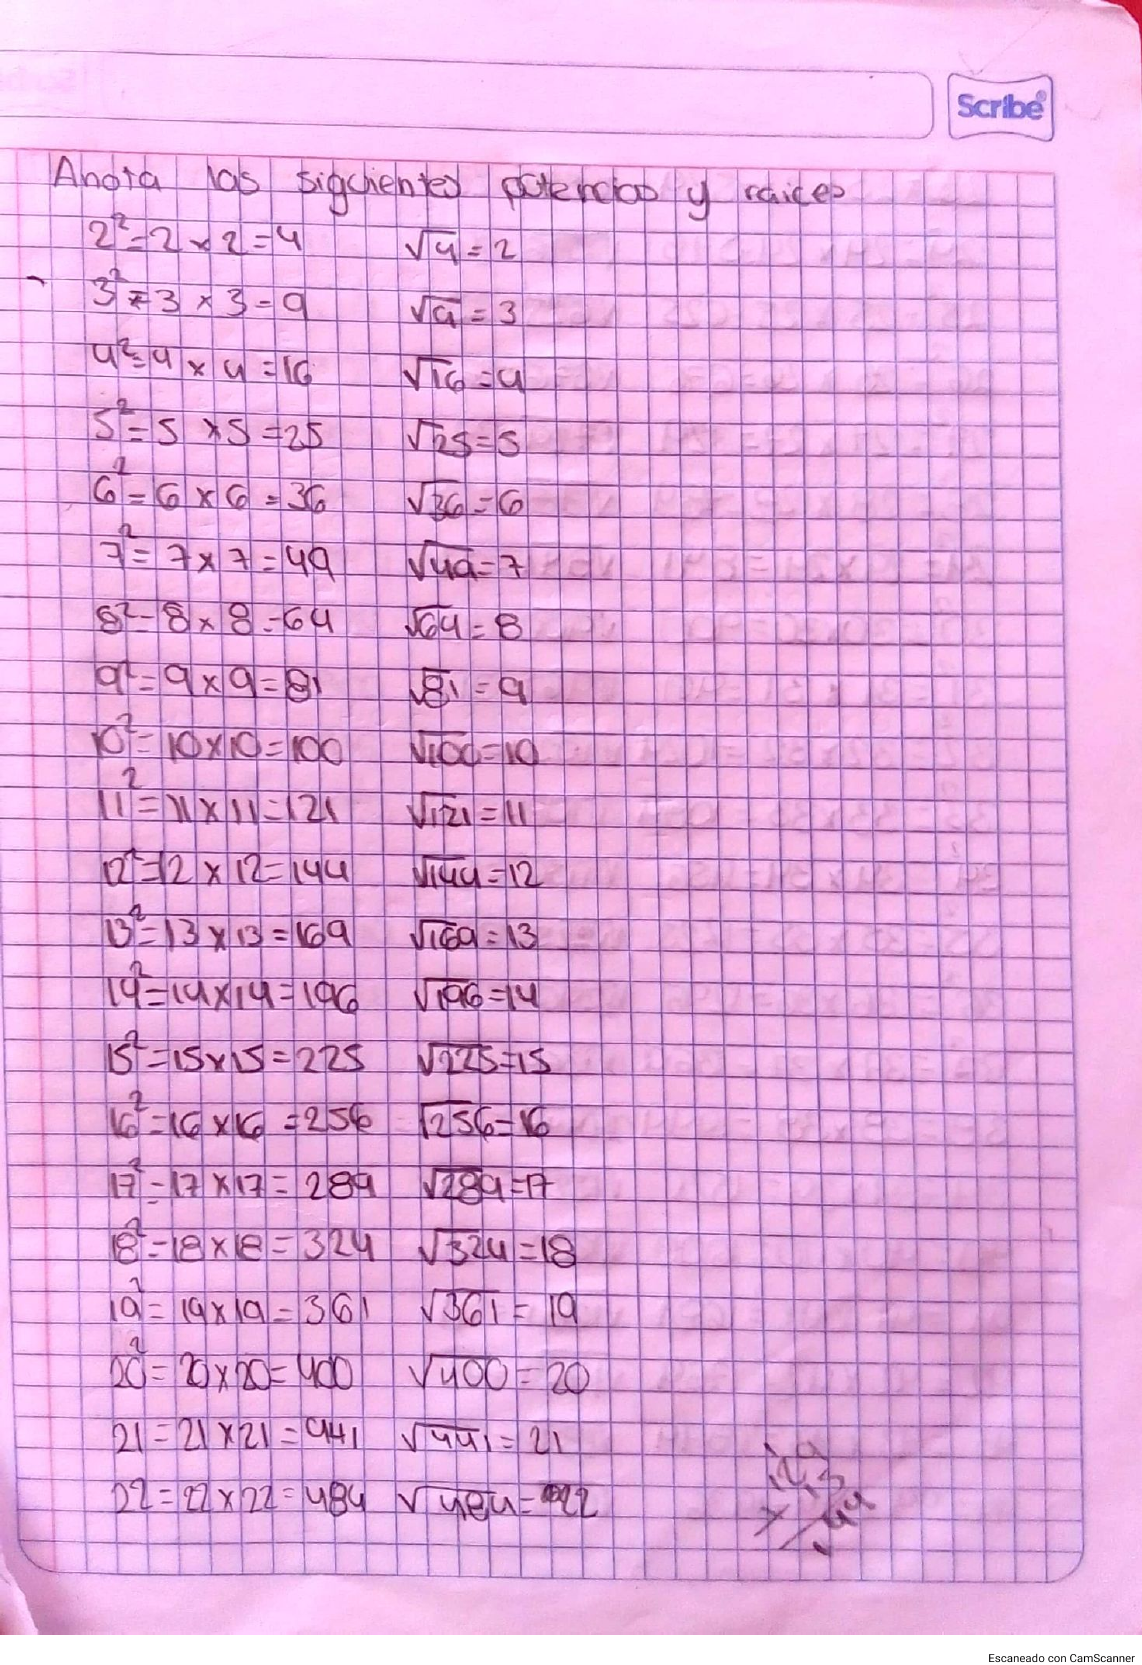 Scribe®
Anota las siguientes potencias y raices
2² = 2 x 2 = 4 √4 = 2
3² = 3 x 3 = 9 √9 = 3
4² = 4 x 4 = 16 √16 = 4
5² = 5 x 5 = 25 √25 = 5
6² = 6 x 6 = 36 √36 = 6
7² = 7 x 7 = 49 √49 = 7
8² = 8 x 8 = 64 √64 = 8
9² = 9 x 9 = 81 √81 = 9
10² = 10 x 10 = 100 √100 = 10
11² = 11 x 11 = 121 √121 = 11
12² = 12 x 12 = 144 √144 = 12
13² = 13 x 13 = 169 √169 = 13
14² = 14 x 14 = 196 √196 = 14
15² = 15 x 15 = 225 √225 = 15
16² = 16 x 16 = 256 √256 = 16
17² = 17 x 17 = 289 √289 = 17
18² = 18 x 18 = 324 √324 = 18
19² = 19 x 19 = 361 √361 = 19
20² = 20 x 20 = 400 √400 = 20
21 = 21 x 21 = 441 √441 = 21
22 = 22 x 22 = 484 √484 = 22
Escaneado con CamScanner